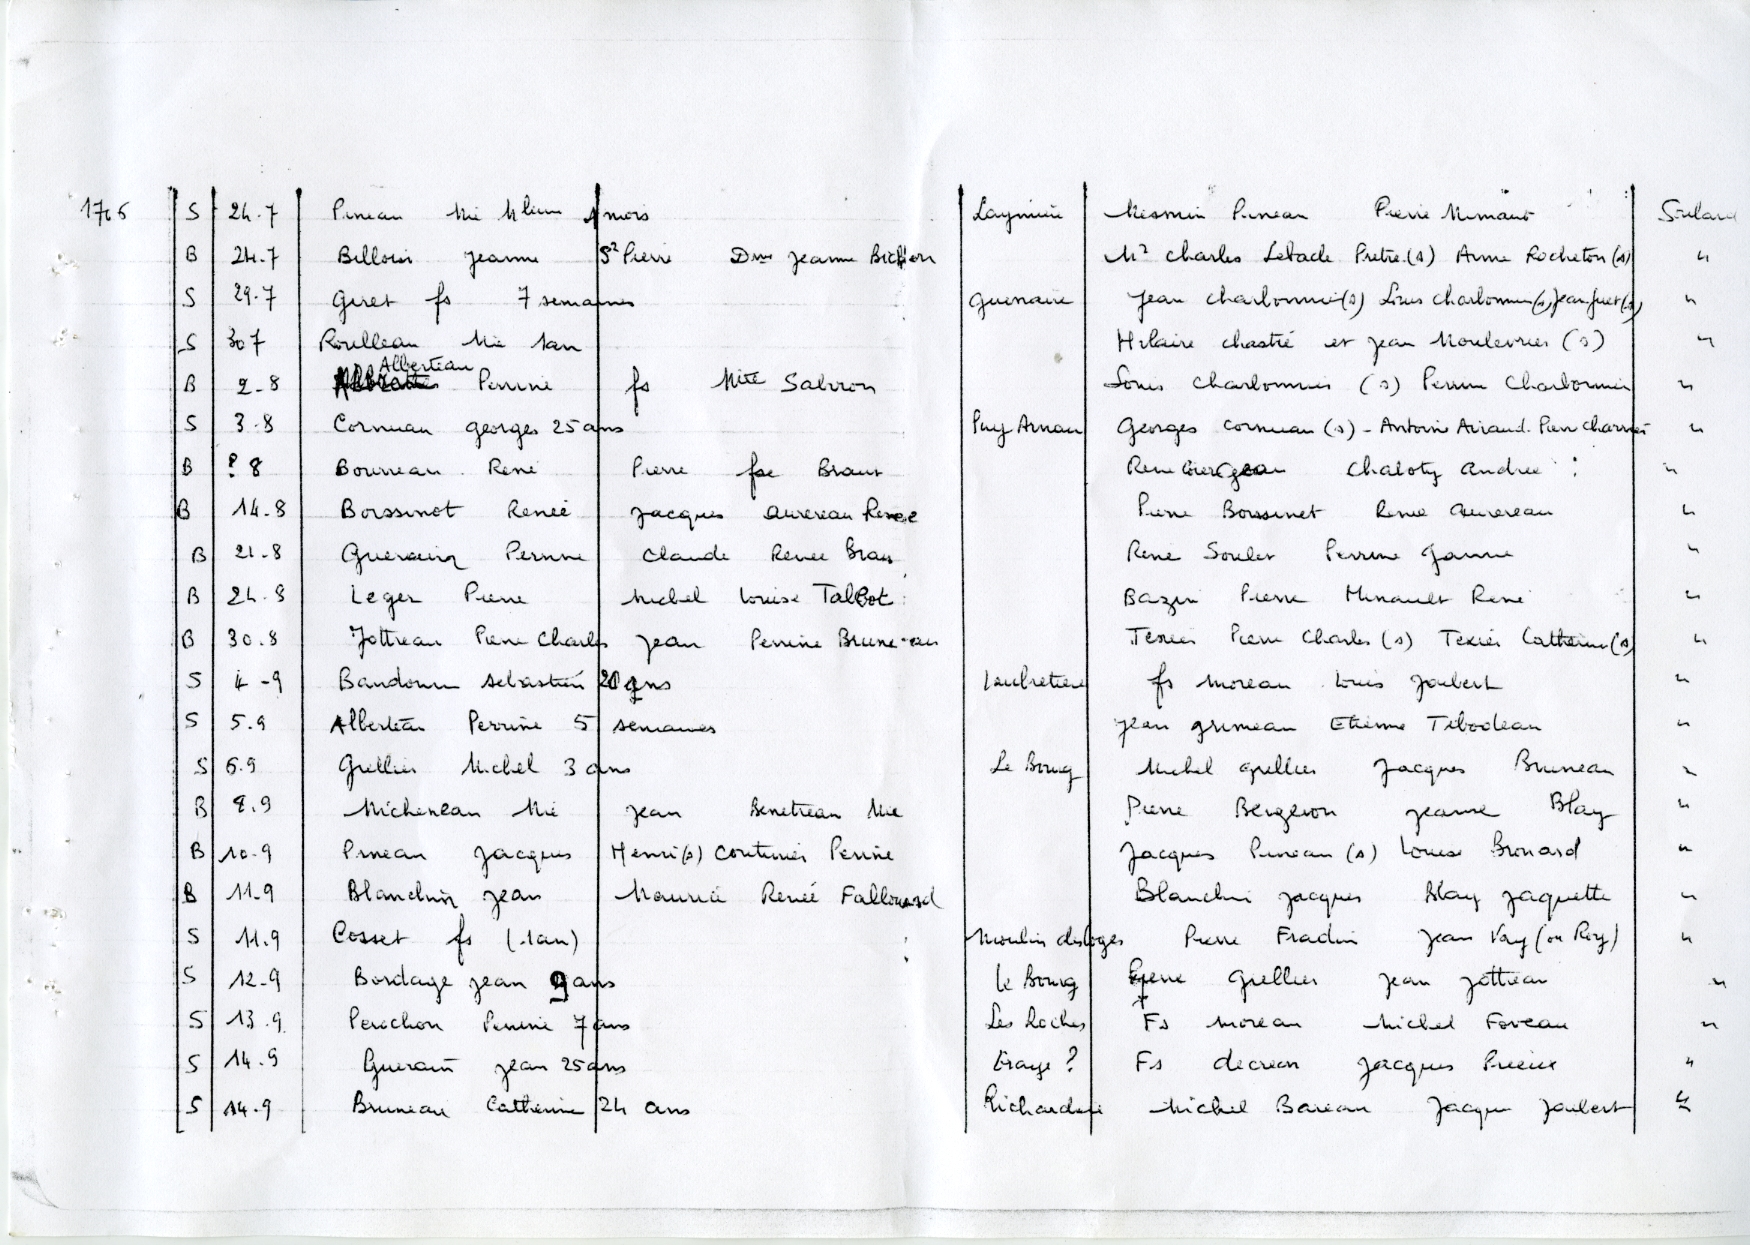 1706 S 24.7 Pineau Mie 1 mois Mesmin Pineau Pierre Soulard
B 24.7 Billouin Jeanne Pierre Jeanne Charles Lebade Pretre (s) Anne Rocheton (s) "
S 29.7 Giret fs 7 semaines Guenaire Jean Charbonnier (s) Louis Charbonnier (s) Jean (s) "
S 30 7 Roulleau Mie 1 an Hilaire Chastié et Jean Moulevrier (s) "
B 2-8 Alberteau Perrine fs Mite Salvion Louis Charbonnier (s) Perrine Charbonnier "
S 3.8 Cornuau Georges 25 ans Puy Arnau Georges Cornuau (s) - Antoine Airaud. Pierre "
B ? 8 Bourreau René Pierre fse Braut René Chaloty Andrée "
B 14.8 Boissinot Renée Jacques Aurereau Renée Pierre Boissinot Renée Aurereau "
B 21-8 Guerain Perrine Claude Renée René Soulet Perrine "
B 24.8 Leger Pierre Michel Louise Talbot Bazin Pierre Minault René "
B 30.8 Jottreau Pierre Charles Jean Perrine Bruneau Texier Pierre Charles (s) Texier Catherine (s) "
S 4-9 Baudouin Sebastien 20 ans fs Moreau Louis Joubert "
S 5.9 Alberteau Perrine 5 semaines Jean Grimeau Etienne Tibodeau "
S 6.9 Grellier Michel 3 ans Le Bourg Michel Grellier Jacques Bruneau "
B 8.9 Micheneau Mie Jean Benetreau Mie Pierre Bergeron Jeanne Blay "
B 10.9 Pineau Jacques Henri (s) Perrine Jacques Pineau (s) Louise Brouard "
B 11.9 Blanchin Jean Maurice Renée Fallourd Blanchin Jacques Blay Jaquette "
S 11.9 Cosset fs (1 an) Moulin des Loges Pierre Fradin Jean Vay (ou Roy) "
S 12-9 Bordage Jean 9 ans Le Bourg Pierre Grellier Jean Jottreau "
S 13.9 Perochon Perrine 7 ans Les Roches Fs Moreau Michel Foreau "
S 14.9 Guerain Jean 25 ans ? Fs Jacques "
S 14.9 Bruneau Catherine 24 ans Richardiere Michel Bareau Jacques Joubert "